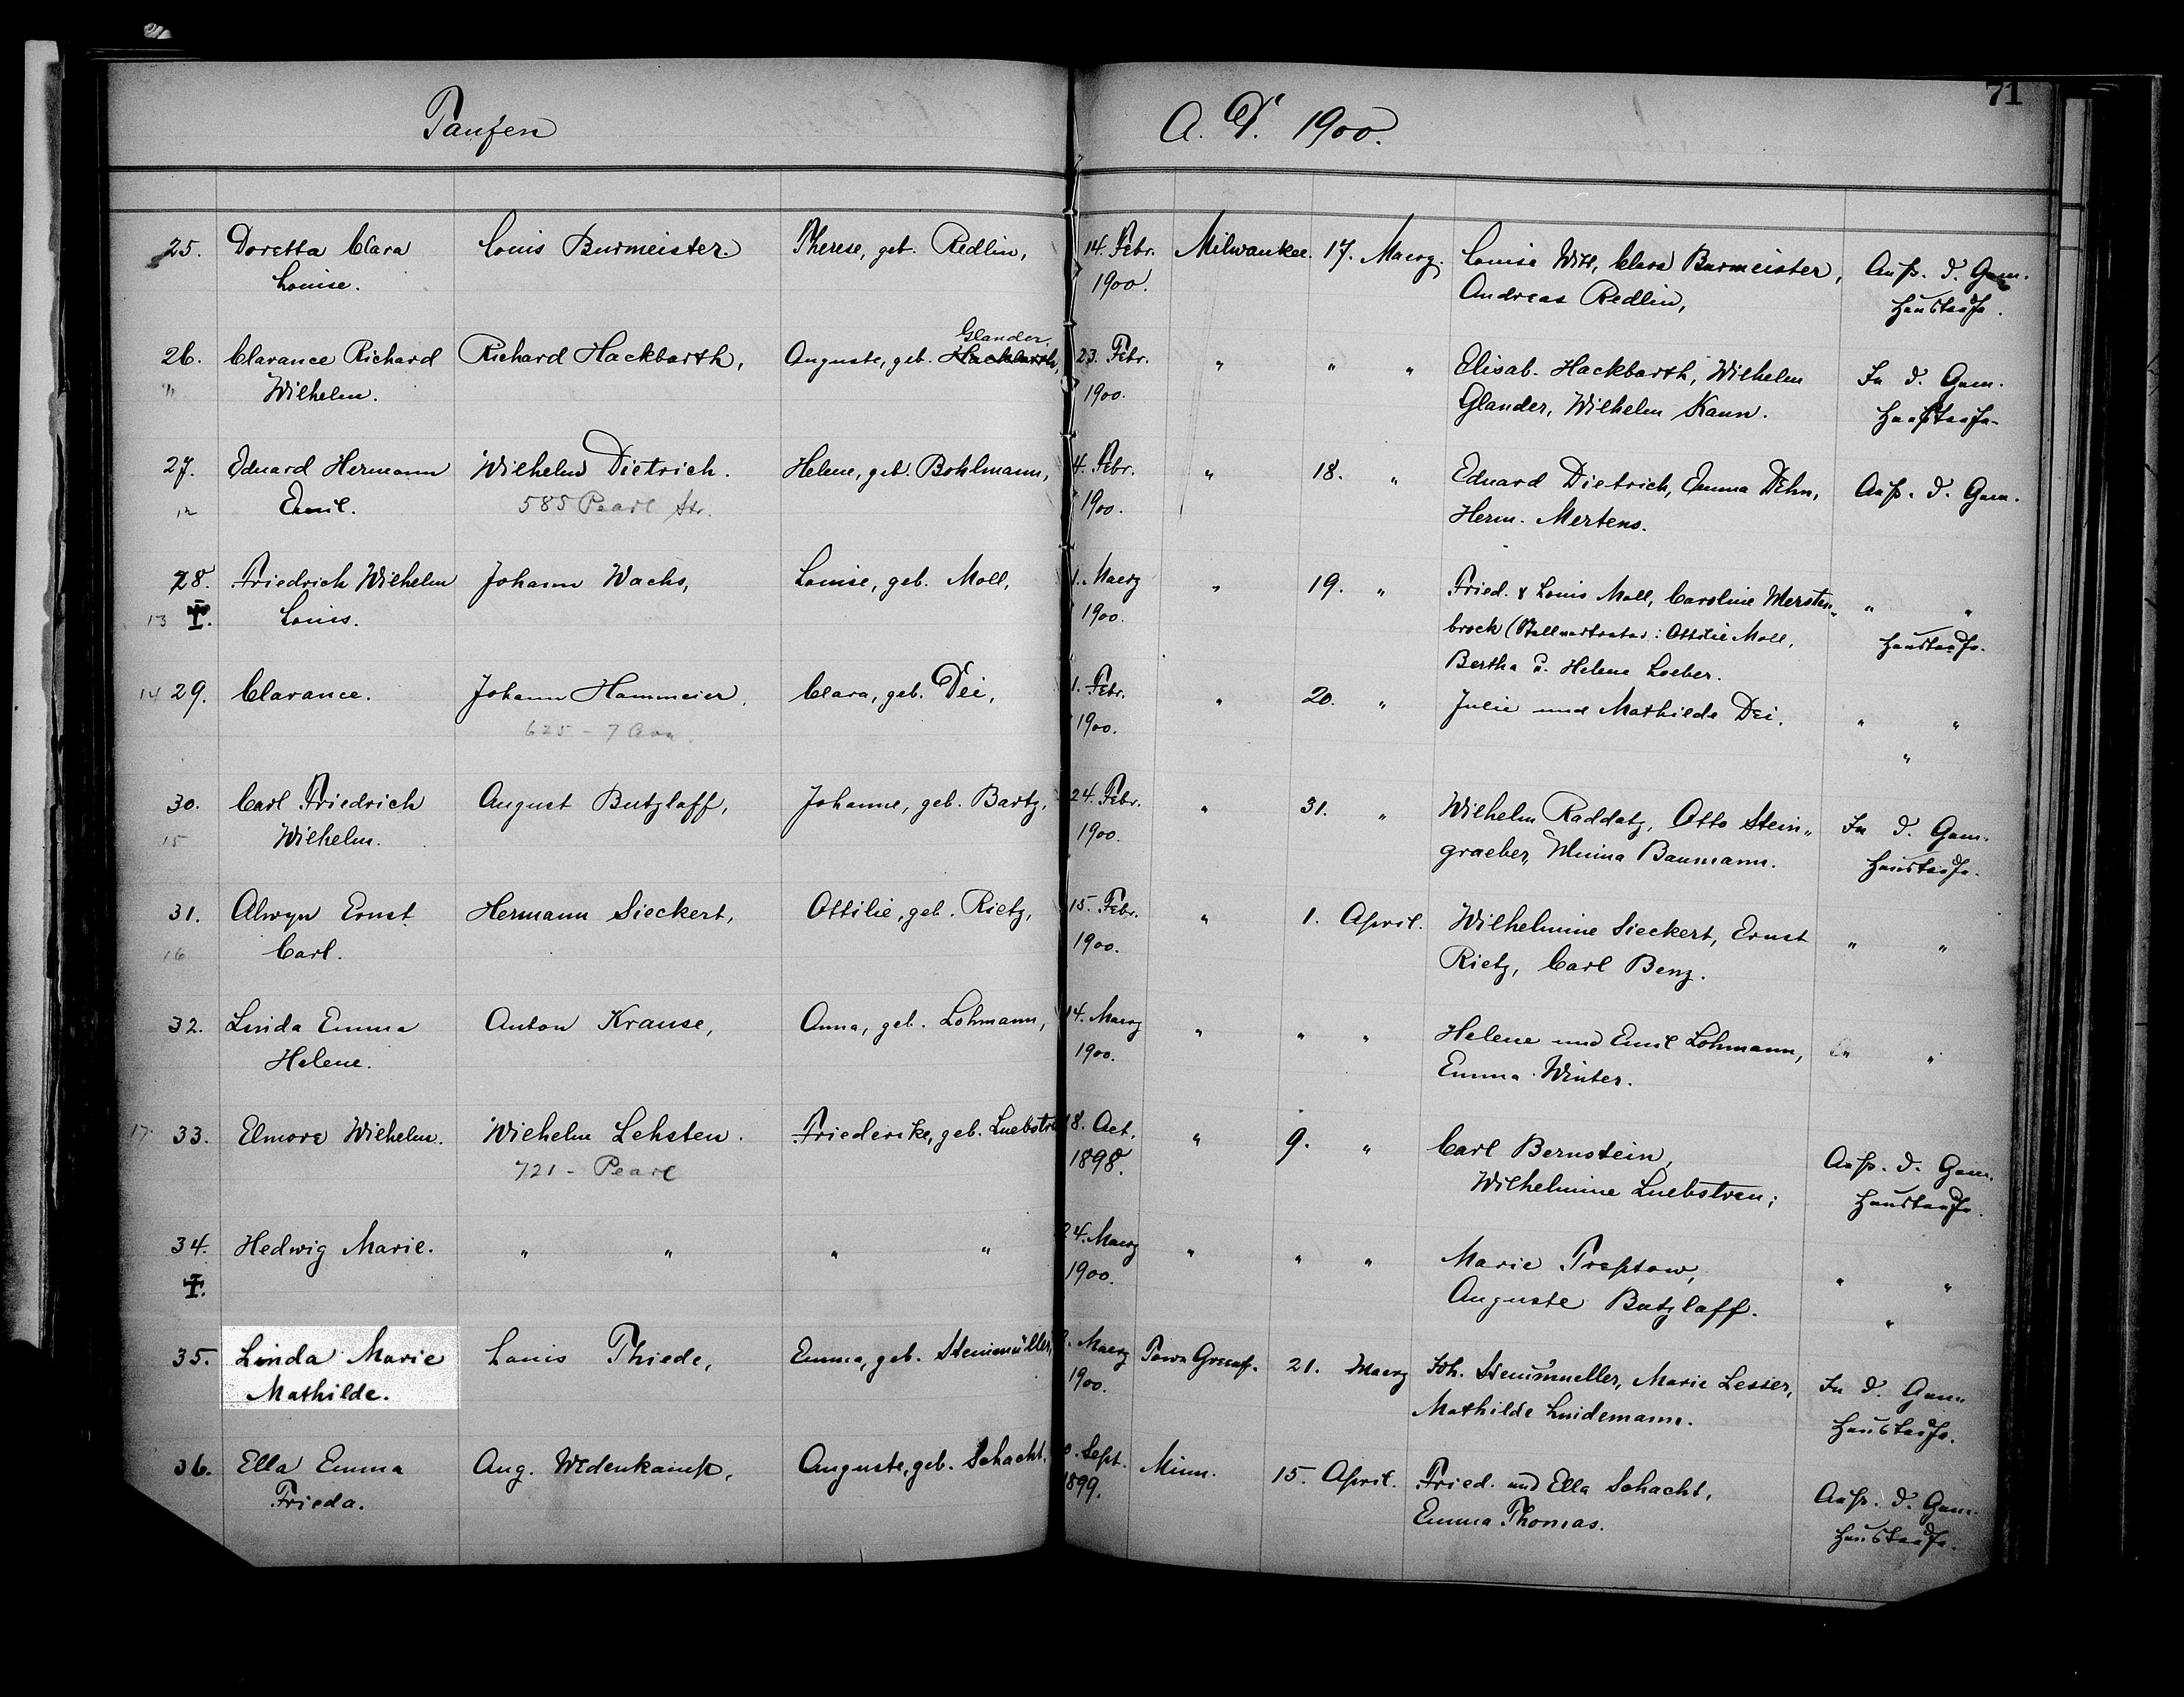 71
Taufen A. D. 1900.
25. Doretta Clara Louis Burmeister. Therese, geb. Redlin, 14. Febr. Milwaukee. 17. Maerz. Louise Witt, Clara Burmeister, Ausz. d. Gem.
Louise. 1900. Andreas Redlin, Haustaufe.
Glander,
26. Clarance Richard Richard Hackbarth, Auguste, geb. Hackbarth, 23. Febr. " " " Elisab. Hackbarth, Wilhelm In d. Gem.
" Wilhelm. 1900. Glander, Wilhelm Kann. Haustaufe.
27. Eduard Hermann Wilhelm Dietrich. Helene, geb. Bohlmann, 4. Febr. " 18. " Eduard Dietrich, Emma Dehn, Ausz. d. Gem.
12 Emil. 585 Pearl Str. 1900. Herm. Mertens.
28. Friedrich Wilhelm Johann Wachs, Louise, geb. Moll, 1. Maerz " 19. " Fried. & Louis Moll, Caroline Mersten" " "
13 T. Louis. 1900. brock (Stellvertreter: Ottilie Moll, Haustaufe.
Bertha u. Helene Loeber.
14 29. Clarance. Johann Hammeier, Clara, geb. Dei, 1. Febr. " 20. " Julie und Mathilde Dei. " "
625 - 7 Ave. 1900. "
30. Carl Friedrich August Butzlaff, Johanne, geb. Bartz, 24. Febr. " 31. " Wilhelm Raddatz, Otto Stein" In d. Gem.
15 Wilhelm. 1900. graeber, Minna Baumann. Haustaufe.
31. Alwyn Ernst Hermann Sieckert, Ottilie, geb. Rietz, 15. Febr. " 1. April. Wilhelmine Sieckert, Ernst " "
16 Carl. 1900. Rietz, Carl Benz.
32. Linda Emma Anton Krause, Anna, geb. Lohmann, 14. Maerz " " " Helene und Emil Lohmann, " "
Helene. 1900. Emma Winter.
17 33. Elmore Wilhelm. Wilhelm Lehsten. Friederike, geb. 18. Oct. " 9. " Carl Bernstein, Ausz. d. Gem.
721 - Pearl 1898. Wilhelmine Luebstren; Haustaufe.
34. Hedwig Marie. " " " " 24. Maerz " " " Marie Treptow, " "
T. 1900. Auguste Butzlaff. "
35. Linda Marie Louis Thiede, Emma, geb. Steinmüller, Maerz Town Greenf. 21. Maerz Joh. Steinmueller, Marie Lesser, In d. Gem.
Mathilde. 1900. Mathilde Lindemann. Haustaufe.
36. Ella Emma Aug. Wedenkamp, Auguste, geb. Schacht, Sept. Minn. 15. April. Fried. und Ella Schacht, Ausz. d. Gem.
Frieda. 1899. Emma Thomas. Haustaufe.